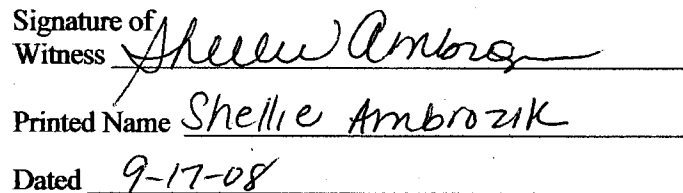 Signature of
Witness Shellie Ambroz
Printed Name Shellie Ambrozik
Dated 9-17-08